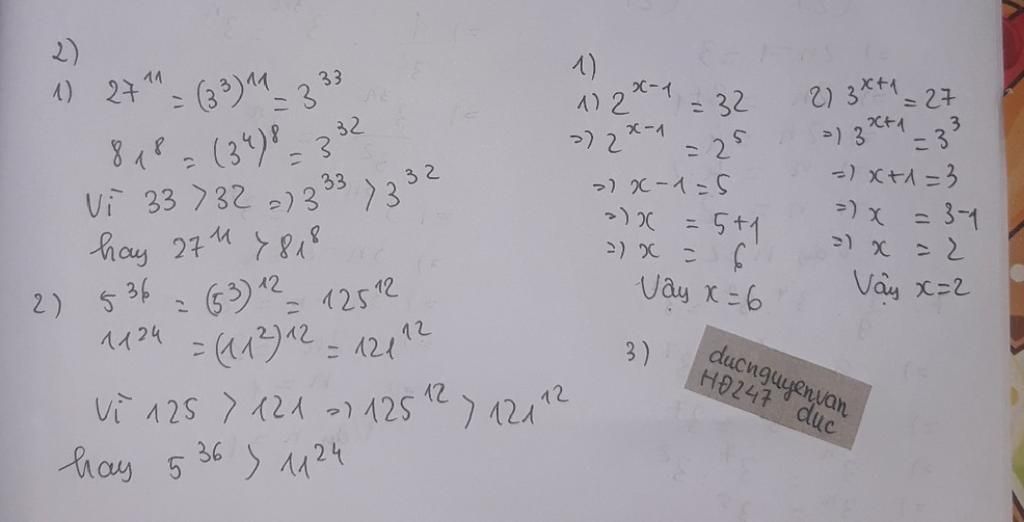 2)
1) 27¹¹ = (3³)¹¹ = 3³³
81⁸ = (3⁴)⁸ = 3³²
Vì 33 > 32 => 3³³ > 3³²
hay 27¹¹ > 81⁸
2) 5³⁶ = (5³)¹² = 125¹²
11²⁴ = (11²)¹² = 121¹²
Vì 125 > 121 => 125¹² > 121¹²
hay 5³⁶ > 11²⁴
1)
1) 2ˣ⁻¹ = 32
=> 2ˣ⁻¹ = 2⁵
=> x-1 = 5
=> x = 5+1
=> x = 6
Vậy x = 6
2) 3ˣ⁺¹ = 27
=> 3ˣ⁺¹ = 3³
=> x+1 = 3
=> x = 3-1
=> x = 2
Vậy x = 2
3)
ducnguyenvan
HĐ247 duc